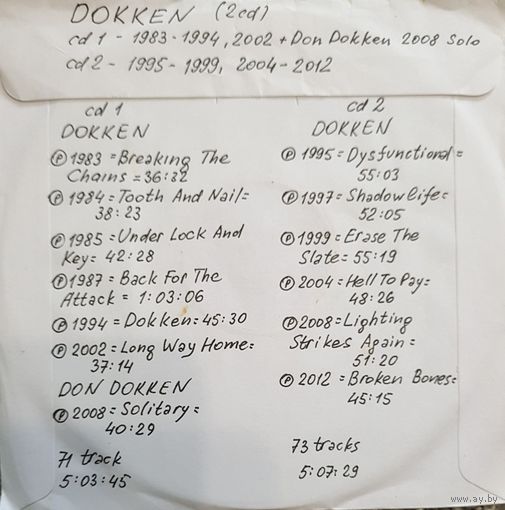 DOKKEN (2cd)
cd 1 - 1983-1994, 2002 + Don Dokken 2008 Solo
cd 2 - 1995-1999, 2004-2012
cd 1
DOKKEN
Ⓟ 1983 = Breaking The
Chains = 36:32
Ⓟ 1984 = Tooth And Nail =
38:23
Ⓟ 1985 = Under Lock And
Key = 42:28
Ⓟ 1987 = Back For The
Attack = 1:03:06
Ⓟ 1994 = Dokken = 45:30
Ⓟ 2002 = Long Way Home =
37:14
DON DOKKEN
Ⓟ 2008 = Solitary =
40:29
71 track
5:03:45
cd 2
DOKKEN
Ⓟ 1995 = Dysfunctional =
55:03
Ⓟ 1997 = Shadowlife =
52:05
Ⓟ 1999 = Erase The
Slate = 55:19
Ⓟ 2004 = Hell To Pay =
48:26
Ⓟ 2008 = Lighting
Strikes Again =
51:20
Ⓟ 2012 = Broken Bones =
45:15
73 tracks
5:07:29
www.ay.by